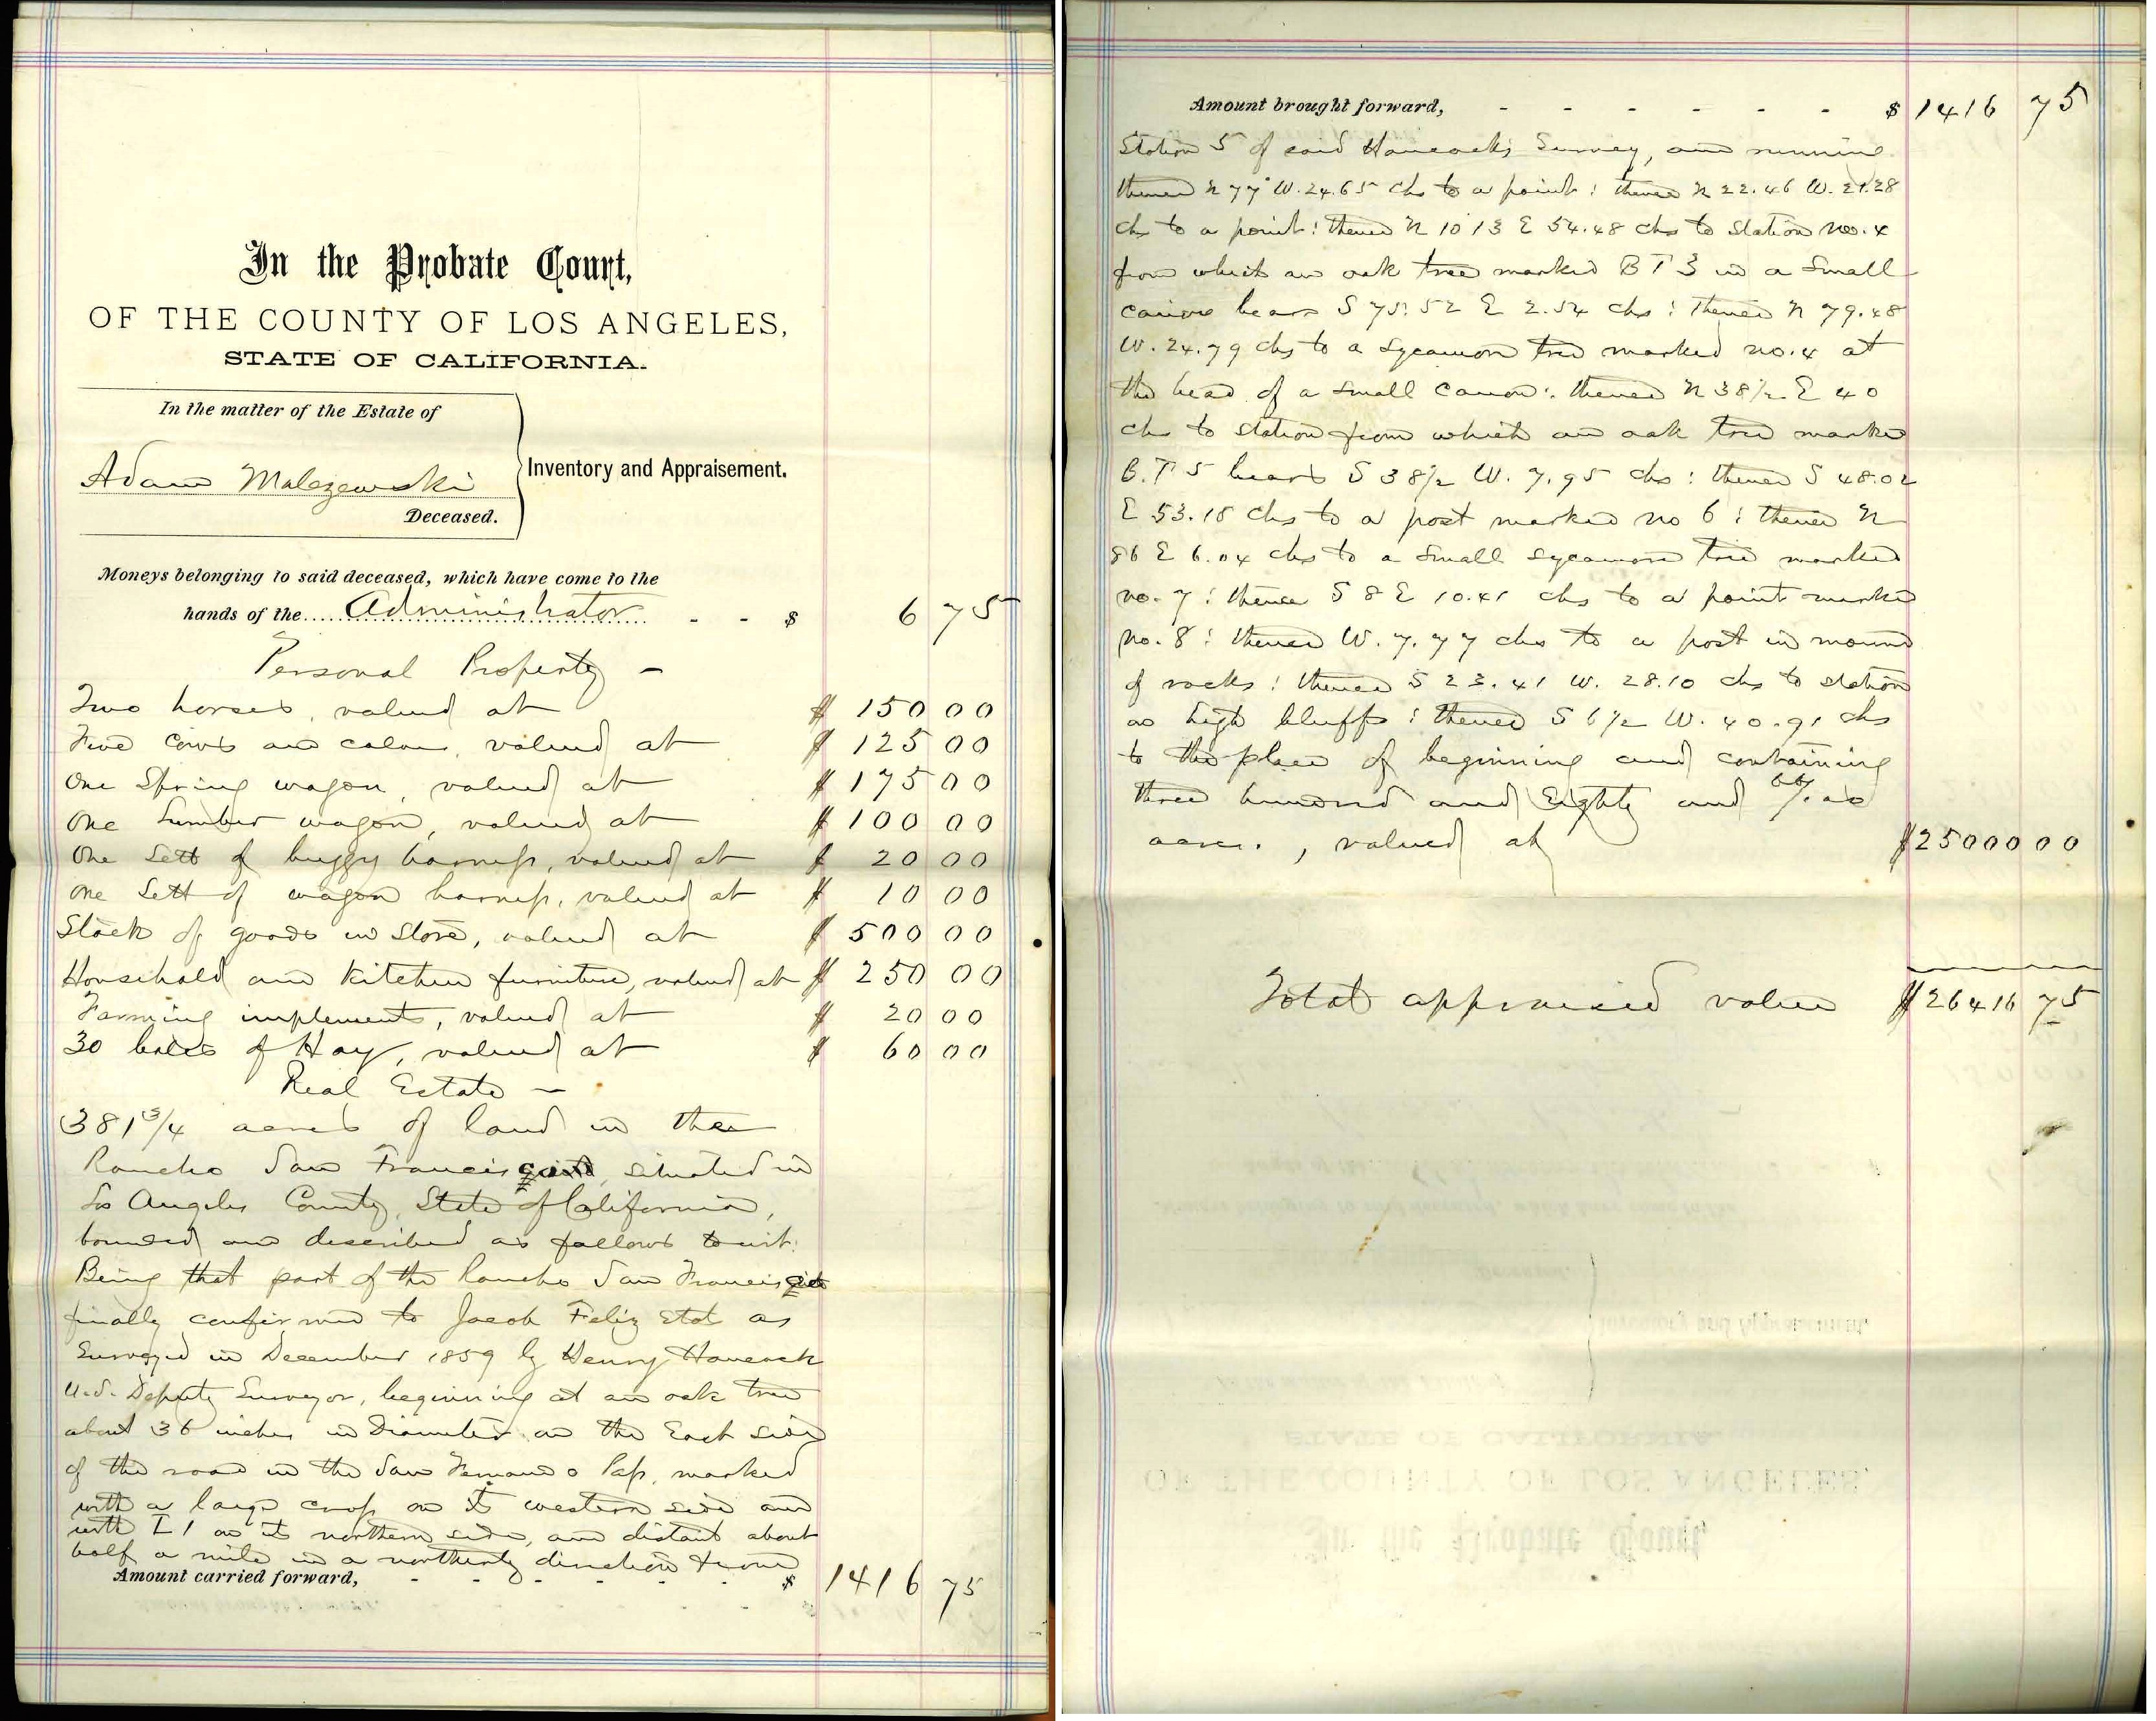 In the Probate Court,
OF THE COUNTY OF LOS ANGELES,
STATE OF CALIFORNIA.
In the matter of the Estate of
Adam Malezewski
Deceased.
Inventory and Appraisement.
Moneys belonging to said deceased, which have come to the
hands of the Administrator - - $ 6 75
Personal Property -
Two horses, valued at $ 150 00
Five cows and calves, valued at $ 125 00
One Spring wagon, valued at $ 175 00
One Lumber wagon, valued at $ 100 00
One Sett of buggy harness, valued at $ 20 00
One Sett of wagon harness, valued at $ 10 00
Stock of goods in Store, valued at $ 500 00
Household and Kitchen furniture, valued at $ 250 00
Farming implements, valued at $ 20 00
30 bales of Hay, valued at $ 60 00
Real Estate -
381 3/4 acres of land in the
Rancho San Francisquito, situated in
Los Angeles County, State of California,
bounded and described as follows to wit:
Being that part of the Rancho San Francisquito
finally confirmed to Jacob Feliz et al as
Surveyed in December 1859 by Henry Hancock
U.S. Deputy Surveyor, beginning at an oak tree
about 36 inches in Diameter on the East side
of the road in the San Fernando Pass, marked
with a large cross on its western side and
with I 1 on its northern side, and distant about
half a mile in a northerly direction from
Amount carried forward, - - - - - - $ 1416 75
Amount brought forward, - - - - - - $ 1416 75
Station 5 of said Hancock's Survey, and running
thence N 77° W. 24.65 chs to a point: thence N 22.46 W. 21.28
chs to a point: thence N 10 13 E 54.48 chs to Station No. 4
from which an oak tree marked B T 3 in a Small
canion bears S 75. 52 E 2.54 chs: thence N 79.48
W. 24.79 chs to a Sycamore tree marked no. 4 at
the head of a small canon: thence N 38 1/2 E 40
chs to station from which an oak tree marked
B. T 5 bears S 38 1/2 W. 7.95 chs: thence S 48.02
E 53.18 chs to a post marked no 6: thence N
86 E 6.04 chs to a Small Sycamore tree marked
no. 7: thence S 8 E 10.41 chs to a point marked
no. 8: thence W. 7.77 chs to a post in mound
of rocks: thence S 23.41 W. 28.10 chs to station
on high bluffs: thence S 6 1/2 W. 40.91 chs
to the place of beginning and containing
three hundred and Eighty and 66/100
acres., valued at $ 25000 00
Total appraised value $ 26416 75